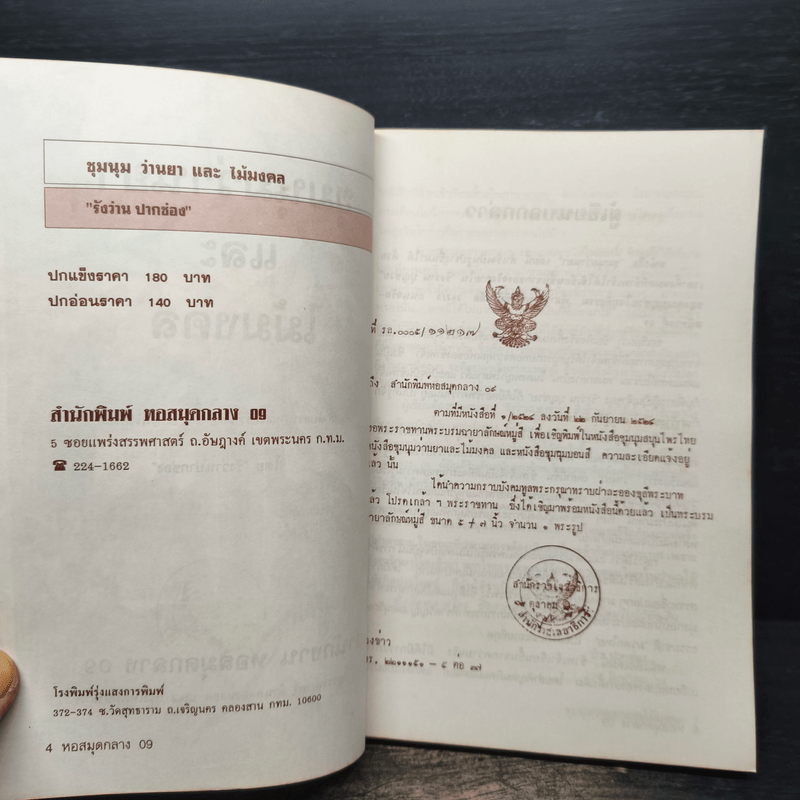 ชุมนุม ว่านยา และ ไม้มงคล
"รังว่าน ปากช่อง"
ปกแข็งราคา 180 บาท
ปกอ่อนราคา 140 บาท
สำนักพิมพ์ หอสมุดกลาง 09
5 ซอยแพร่งสรรพศาสตร์ ถ.อัษฎางค์ เขตพระนคร ก.ท.ม.
☎ 224-1662
โรงพิมพ์รุ่งแสงการพิมพ์
372-374 ซ.วัดสุทธาราม ถ.เจริญนคร คลองสาน กทม. 10600
4 หอสมุดกลาง 09
ที่ รล.๐๐๐๕/๑๑๒๑๗
ถึง สำนักพิมพ์หอสมุดกลาง ๐๙
ตามที่มีหนังสือที่ ๑/๒๕๒๔ ลงวันที่ ๒๒ กันยายน ๒๕๒๔
ขอพระราชทานพระบรมฉายาลักษณ์หมู่สี่ เพื่อเชิญพิมพ์ในหนังสือชุมนุมสมุนไพรไทย
หนังสือชุมนุมว่านยาและไม้มงคล และหนังสือชุมนุมบอนสี ความละเอียดแจ้งอยู่
แล้ว นั้น
ได้นำความกราบบังคมทูลพระกรุณาทราบฝ่าละอองธุลีพระบาท
แล้ว โปรดเกล้า ฯ พระราชทาน ซึ่งได้เชิญมาพร้อมหนังสือนี้ด้วยแล้ว เป็นพระบรม
ฉายาลักษณ์หมู่สี่ ขนาด ๕ + ๗ นิ้ว จำนวน ๑ พระรูป
สำนักราชเลขาธิการ
ตุลาคม
สำนักราชเลขาธิการ
องข่าว
ทร. ๒๒๑๑๑๕๑ - ๕ ต่อ ๓๗